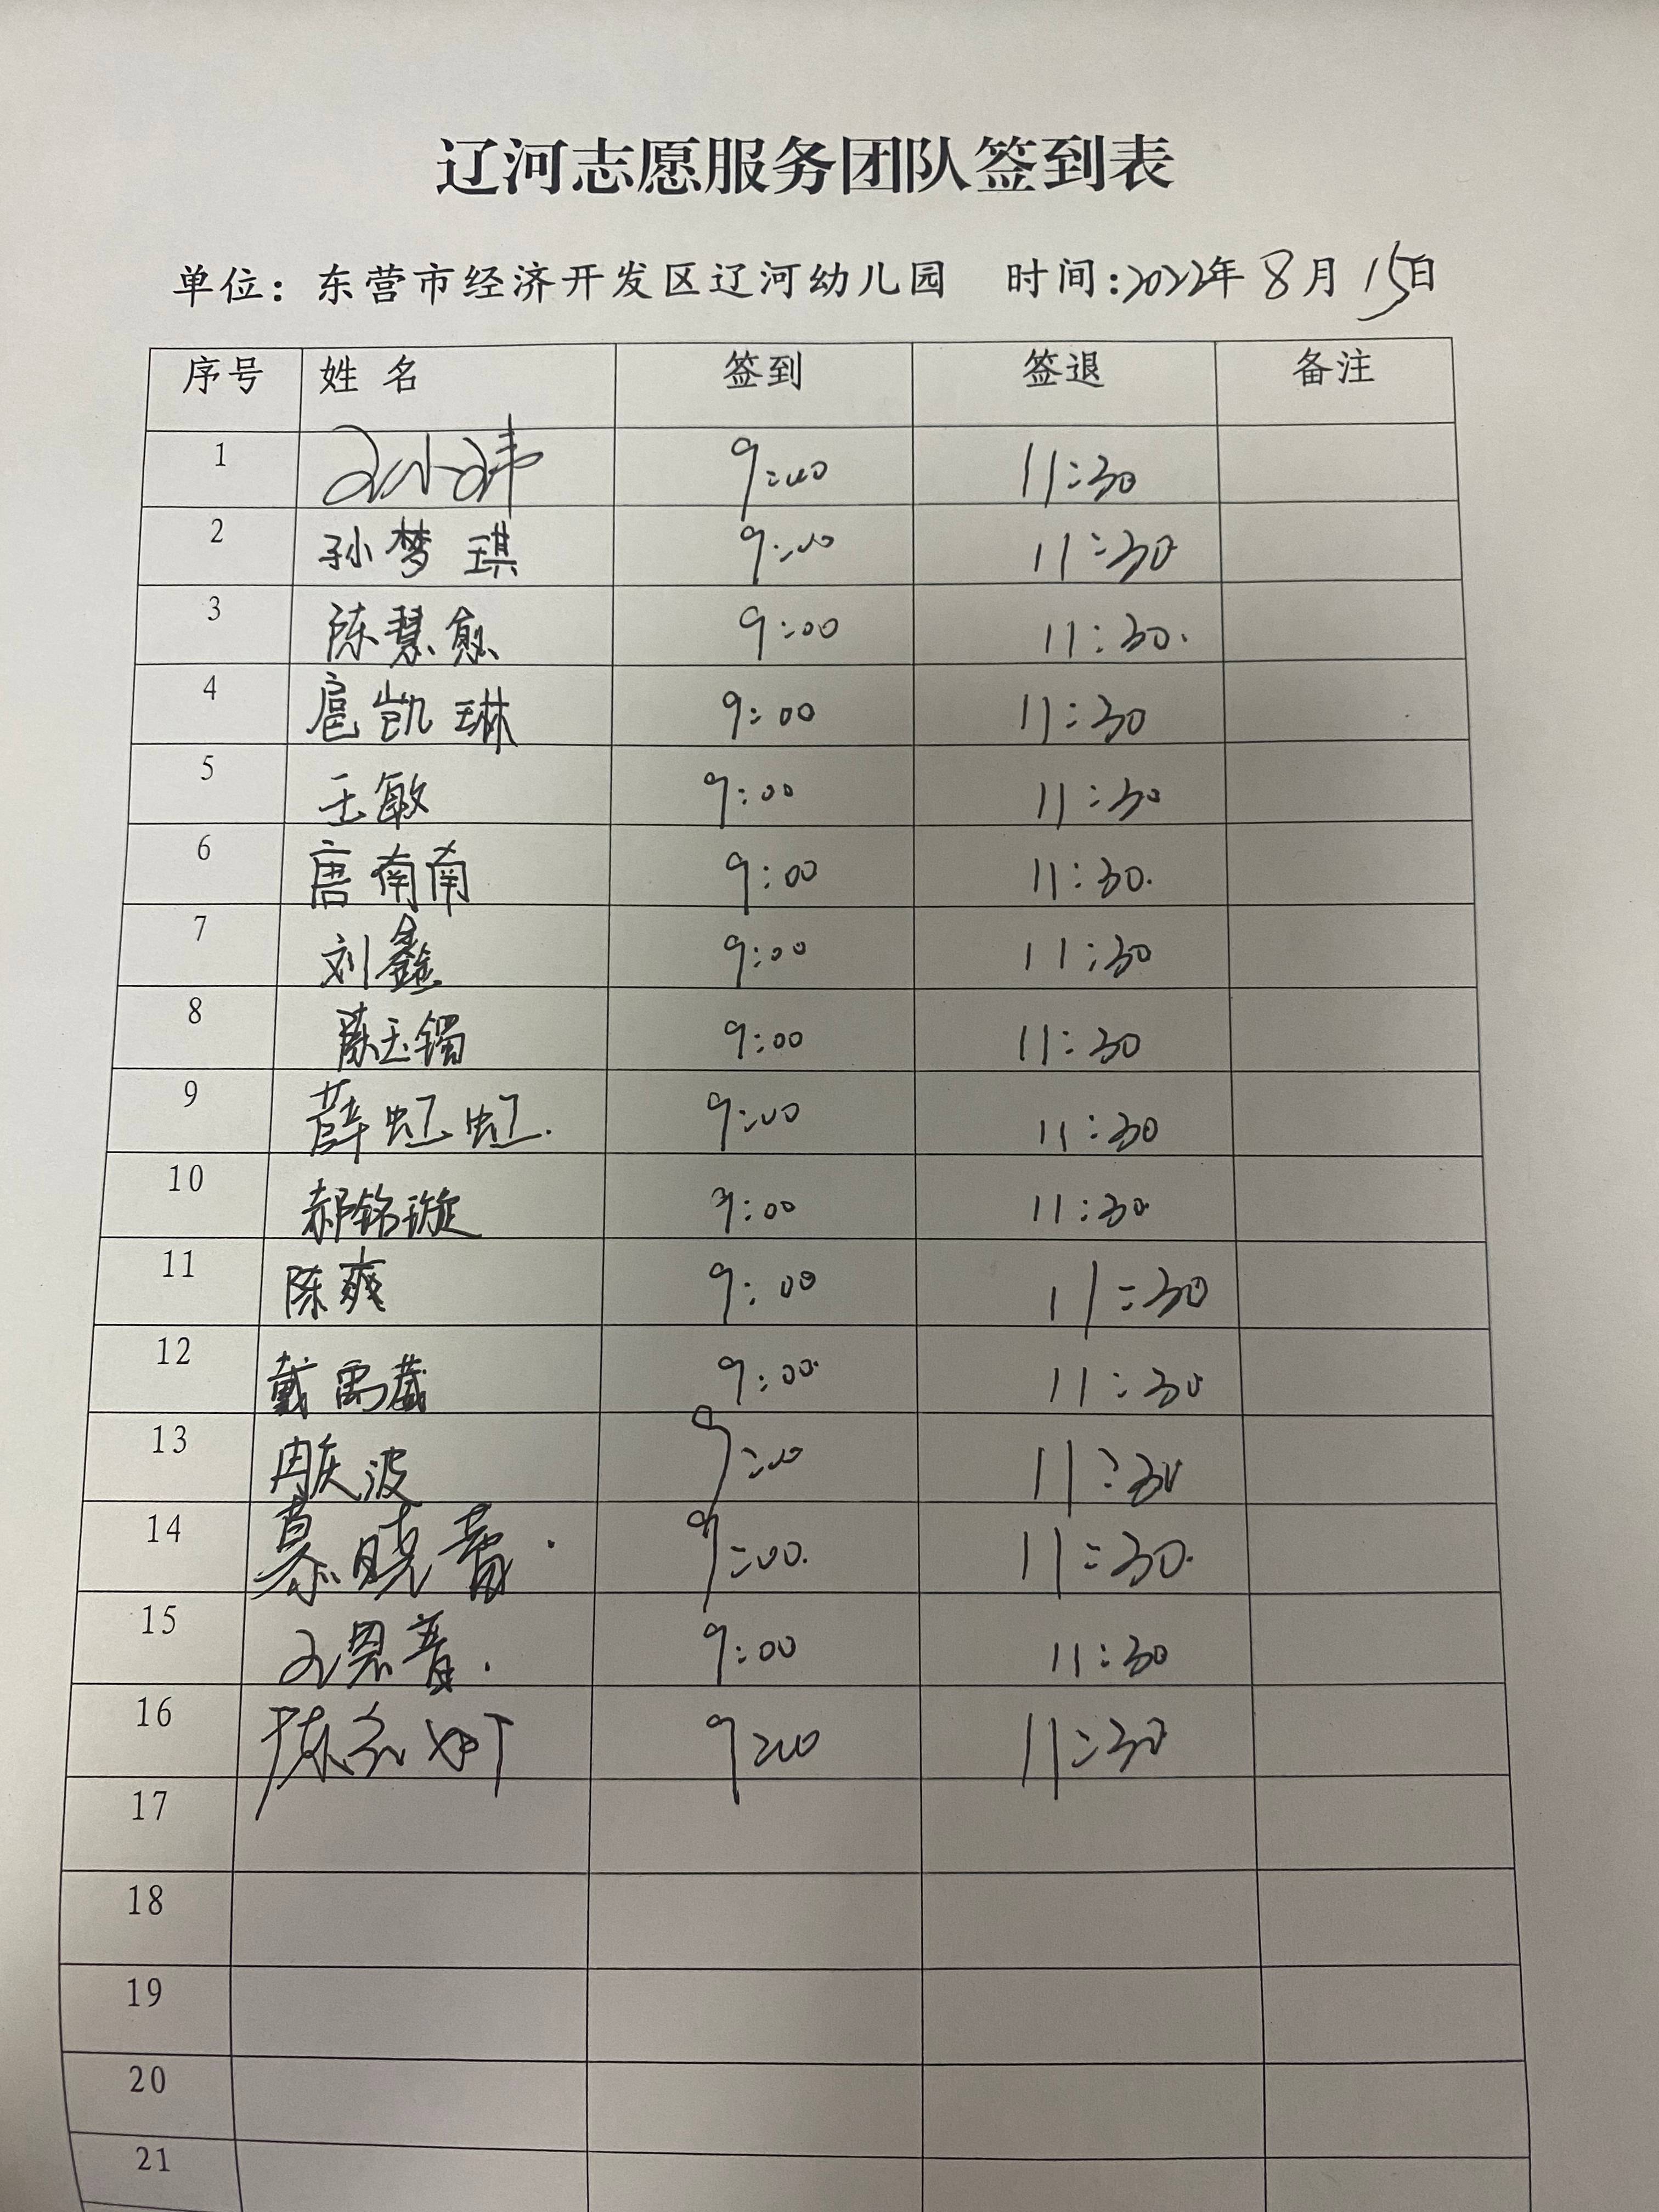 辽河志愿服务团队签到表
单位：东营市经济开发区辽河幼儿园 时间：2022年 8月 15日
序号 姓 名 签到 签退 备注
1 9:00 11:30
2 孙梦琪 9:00 11:30
3 陈慧愈 9:00 11:30.
4 扈凯琳 9:00 11:30
5 王敏 9:00 11:30
6 唐南南 9:00 11:30.
7 刘鑫 9:00 11:30
8 陈玉镯 9:00 11:30
9 薛虹虹. 9:00 11:30
10 郝铭璇 9:00 11:30
11 陈爽 9:00 11:30
12 戴禹葳 9:00 11:30
13 冉庆波 9:00 11:30
14 慕晓青. 9:00. 11:30.
15 9:00 11:30
16 9:00 11:30
17
18
19
20
21